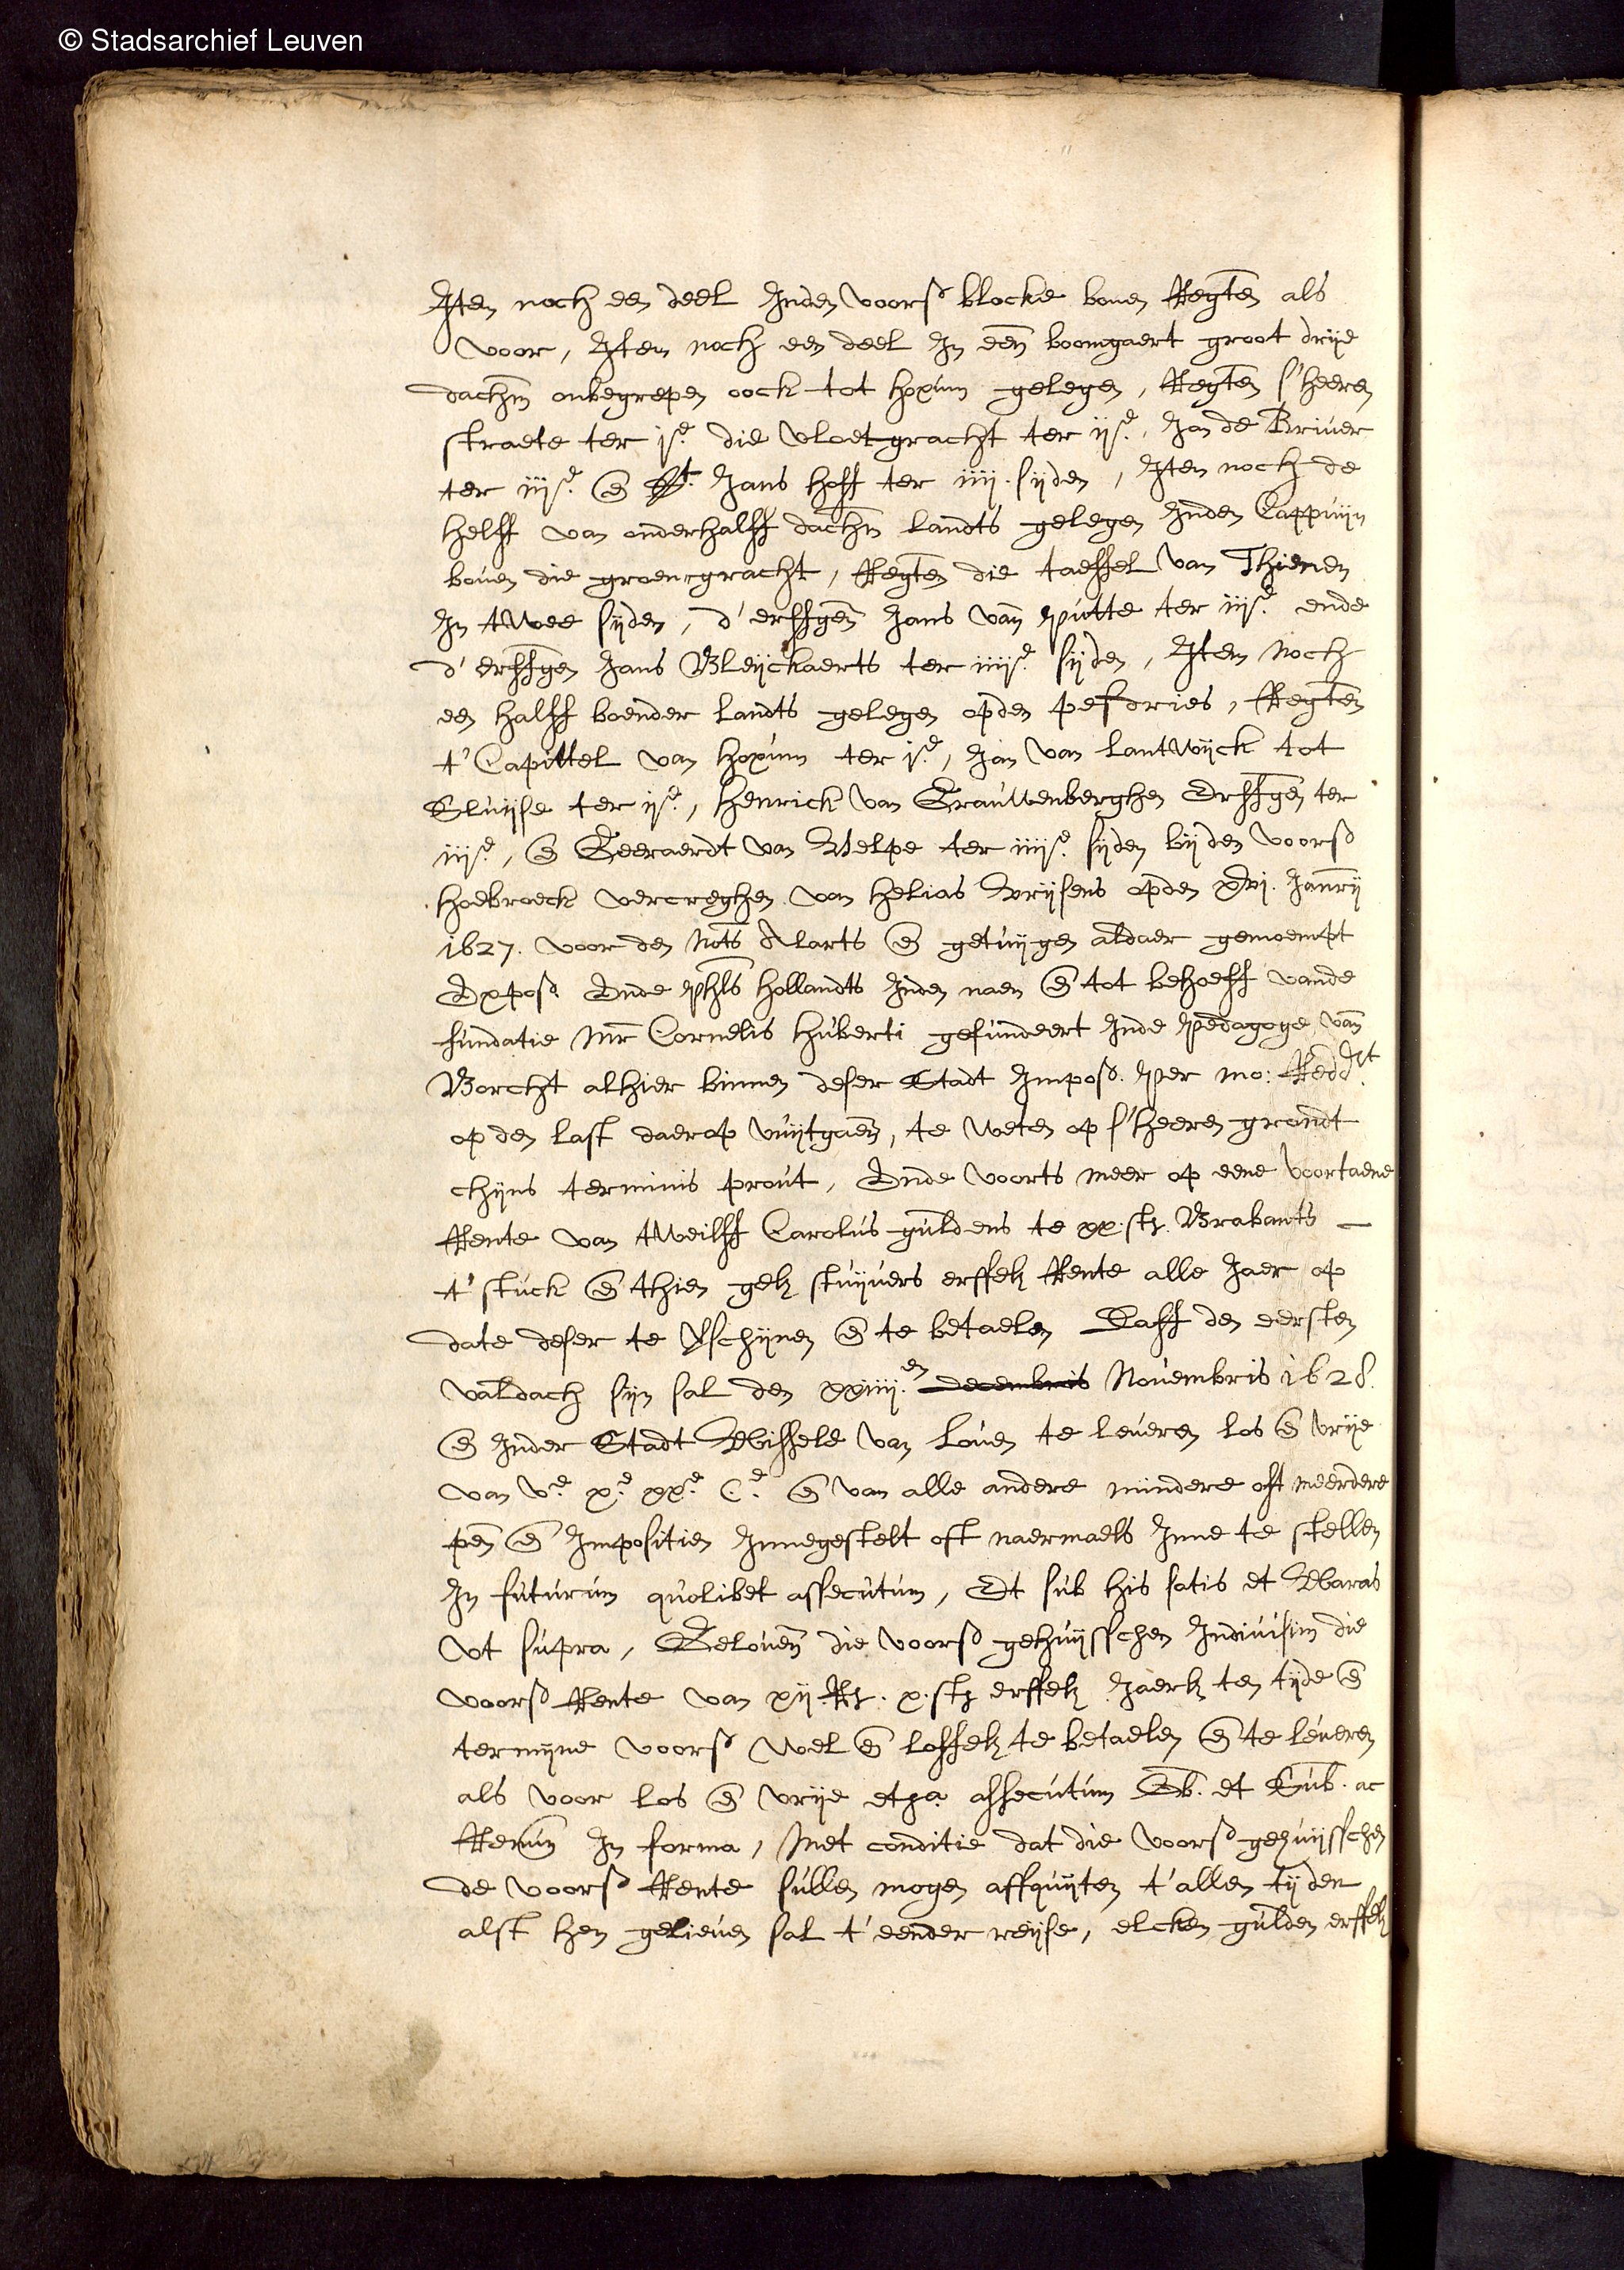 © Stadsarchief Leuven
Item noch een deel Inden voors blocke boven Regten als
voor, Item noch een deel In een boomgaert groot drije
dachm onbegrepen oock tot hoxum gelegen, Regten s'heeren
straete ter js.e die vloetgracht ter ijs.e, Jan de Briuer
ter iijs.e en St. Jans hoff ter iiij. sijden, Item noch de
helff van onderhalff dachm landts gelegen Inden Cappuijn
boven die groenegracht, Regten die taeffel van Thienen
In twee sijden, d'erffgen Jans van Putte ter iijs.e ende
d'erffgen Jans Bleijckaerts ter iiijs.e sijden, Item noch
een halff boender landts gelegen opden pesdries, Regten
t'Capittel van hoxum ter js.e, Jan van lantwijck tot
Sluijse ter ijs.e, Henrick van Grauwenberghen Erffgen ter
iijs.e, en Geeraerdt van Velpe ter iiijs.e sijden bijden voors
hoebroeck vercreghen van Helias Vrijsens opden xvj. Januarij
1627. voor den Nots Alarts en getuijgen aldaer genoempt
Expos. Ende Phls Hollandts Inden naem en tot behoeff vande
fundatie Mr Cornelis Huberti gefundeert Inde Pedagoge van
Borcht alhier binnen deser Stadt Impos. Per mo: Redd.it
op den last daerop vuijtgaen, te weten op s'heeren grondt
chijns terminis prout, Ende voorts meer op eene voortaene
Rente van tweilff Carolus guldens te xx. st. Brabants
t'stuck en thien gel stuijvers erffel Rente alle Jaer op
date deser te vschijnen en te betaelen Daeff den eersten
valdach sijn sal den xxiiij.en decembris Novembris 1628.
en Inder Stadt Wissele van Loven te leveren los en vrije
van v.e x.e xx.e C.e en van alle andere mindere oft meerdere
pen en Impositien Innegestelt oft naermaels Inne te stellen
In futurum quolibet assecutum, Et sub his satis et Waras
Ut supra, Geloven die voors gehuijsschen Indivisim die
voors Rente van xij. R. x. st. erffel Jaerl ten tijde en
termijne voors wel en loffel te betaelen en te leveren
als voor los en vrije etra assecutum Ob. et Sub. ac
Renun In forma, Met conditie dat die voors gehuijsschen
de voors Rente sullen mogen affquijten t'allen tijden
alst hen gelieven sal t'eender reijse, elcken gulden erffel